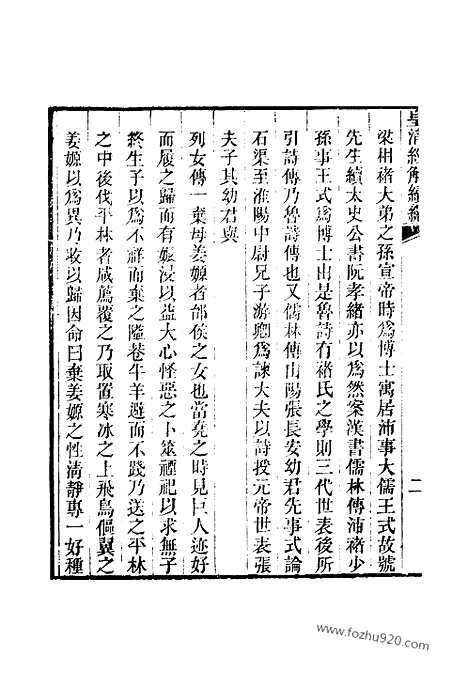 皇清經解續編
二
梁相褚大弟之孫宣帝時爲博士寓居沛事大儒王式故號
先生續太史公書阮孝緒亦以爲然案漢書儒林傳沛褚少
孫事王式爲博士由是魯詩有褚氏之學則三代世表後所
引詩傳乃魯詩傳也又儒林傳山陽張長安幼君先事式論
石渠至淮陽中尉兄子游卿爲諫大夫以詩授元帝世表張
夫子其幼君與
列女傳一棄母姜嫄者邰侯之女也當堯之時見巨人迹好
而履之歸而有娠浸以益大心怪惡之卜筮禋祀以求無子
終生子以爲不祥而棄之隘巷牛羊避而不踐乃送之平林
之中後伐平林者咸薦覆之乃取置寒冰之上飛鳥傴翼之
姜嫄以爲異乃收以歸因命曰棄姜嫄之性清靜專一好種
www.fozhu920.com